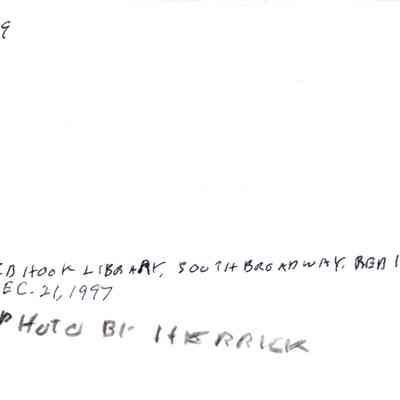 9
ED HOOK LIBRARY, SOUTH BROADWAY. RED H
EC. 21, 1997
PHOTO BY HERRICK